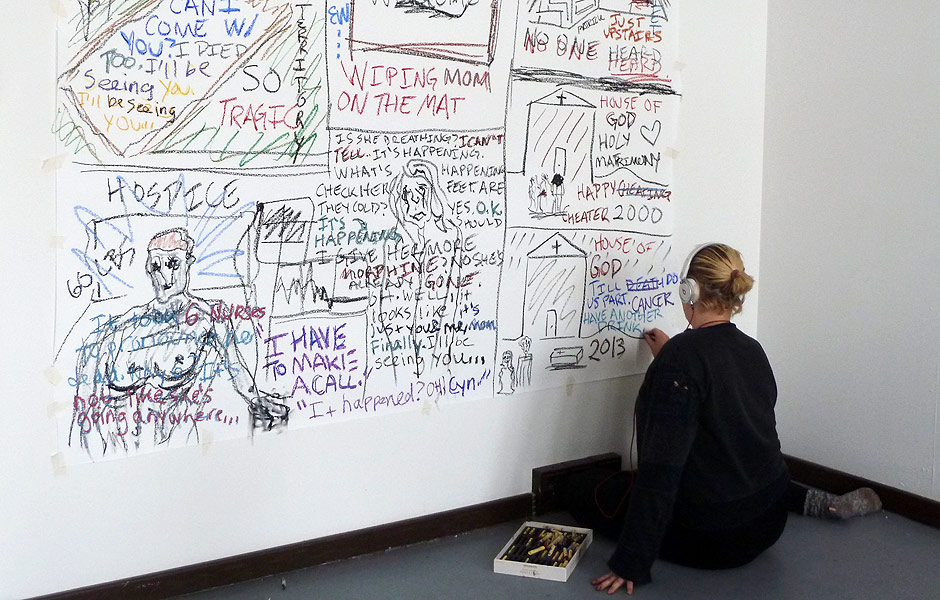 CAN I
COME W/
YOU? I DIED
TOO. I'll be
Seeing you.
I'll be seeing
YOU...
SO
TRAGIC
TERRITORY
WIPING MOM
ON THE MAT
JUST
UPSTAIRS
NO ONE HEARD
HEARD
HOSPICE
IS SHE BREATHING? I CAN'T
TELL.. IT'S HAPPENING.
WHAT'S HAPPENING
CHECK HER FEET. ARE
THEY COLD? YES. O.K.
IT'S SHOULD
HAPPENING
I GIVE HER MORE
MORPHINE? NO SHE'S
ALREADY GONE.
WELL IT
looks like it's
just you & me, mom
Finally. I'll be
seeing you...
6 NURSES
not like she's
going anywhere...
"I HAVE
TO MAKE
A CALL."
"It happened? OH! Cyn."
HOUSE OF
GOD
HOLY
MATRIMONY
HAPPY CHEATING
CHEATER 2000
HOUSE OF
GOD
TILL DEATH DO
US PART. CANCER
HAVE ANOTHER
DRINK
2013